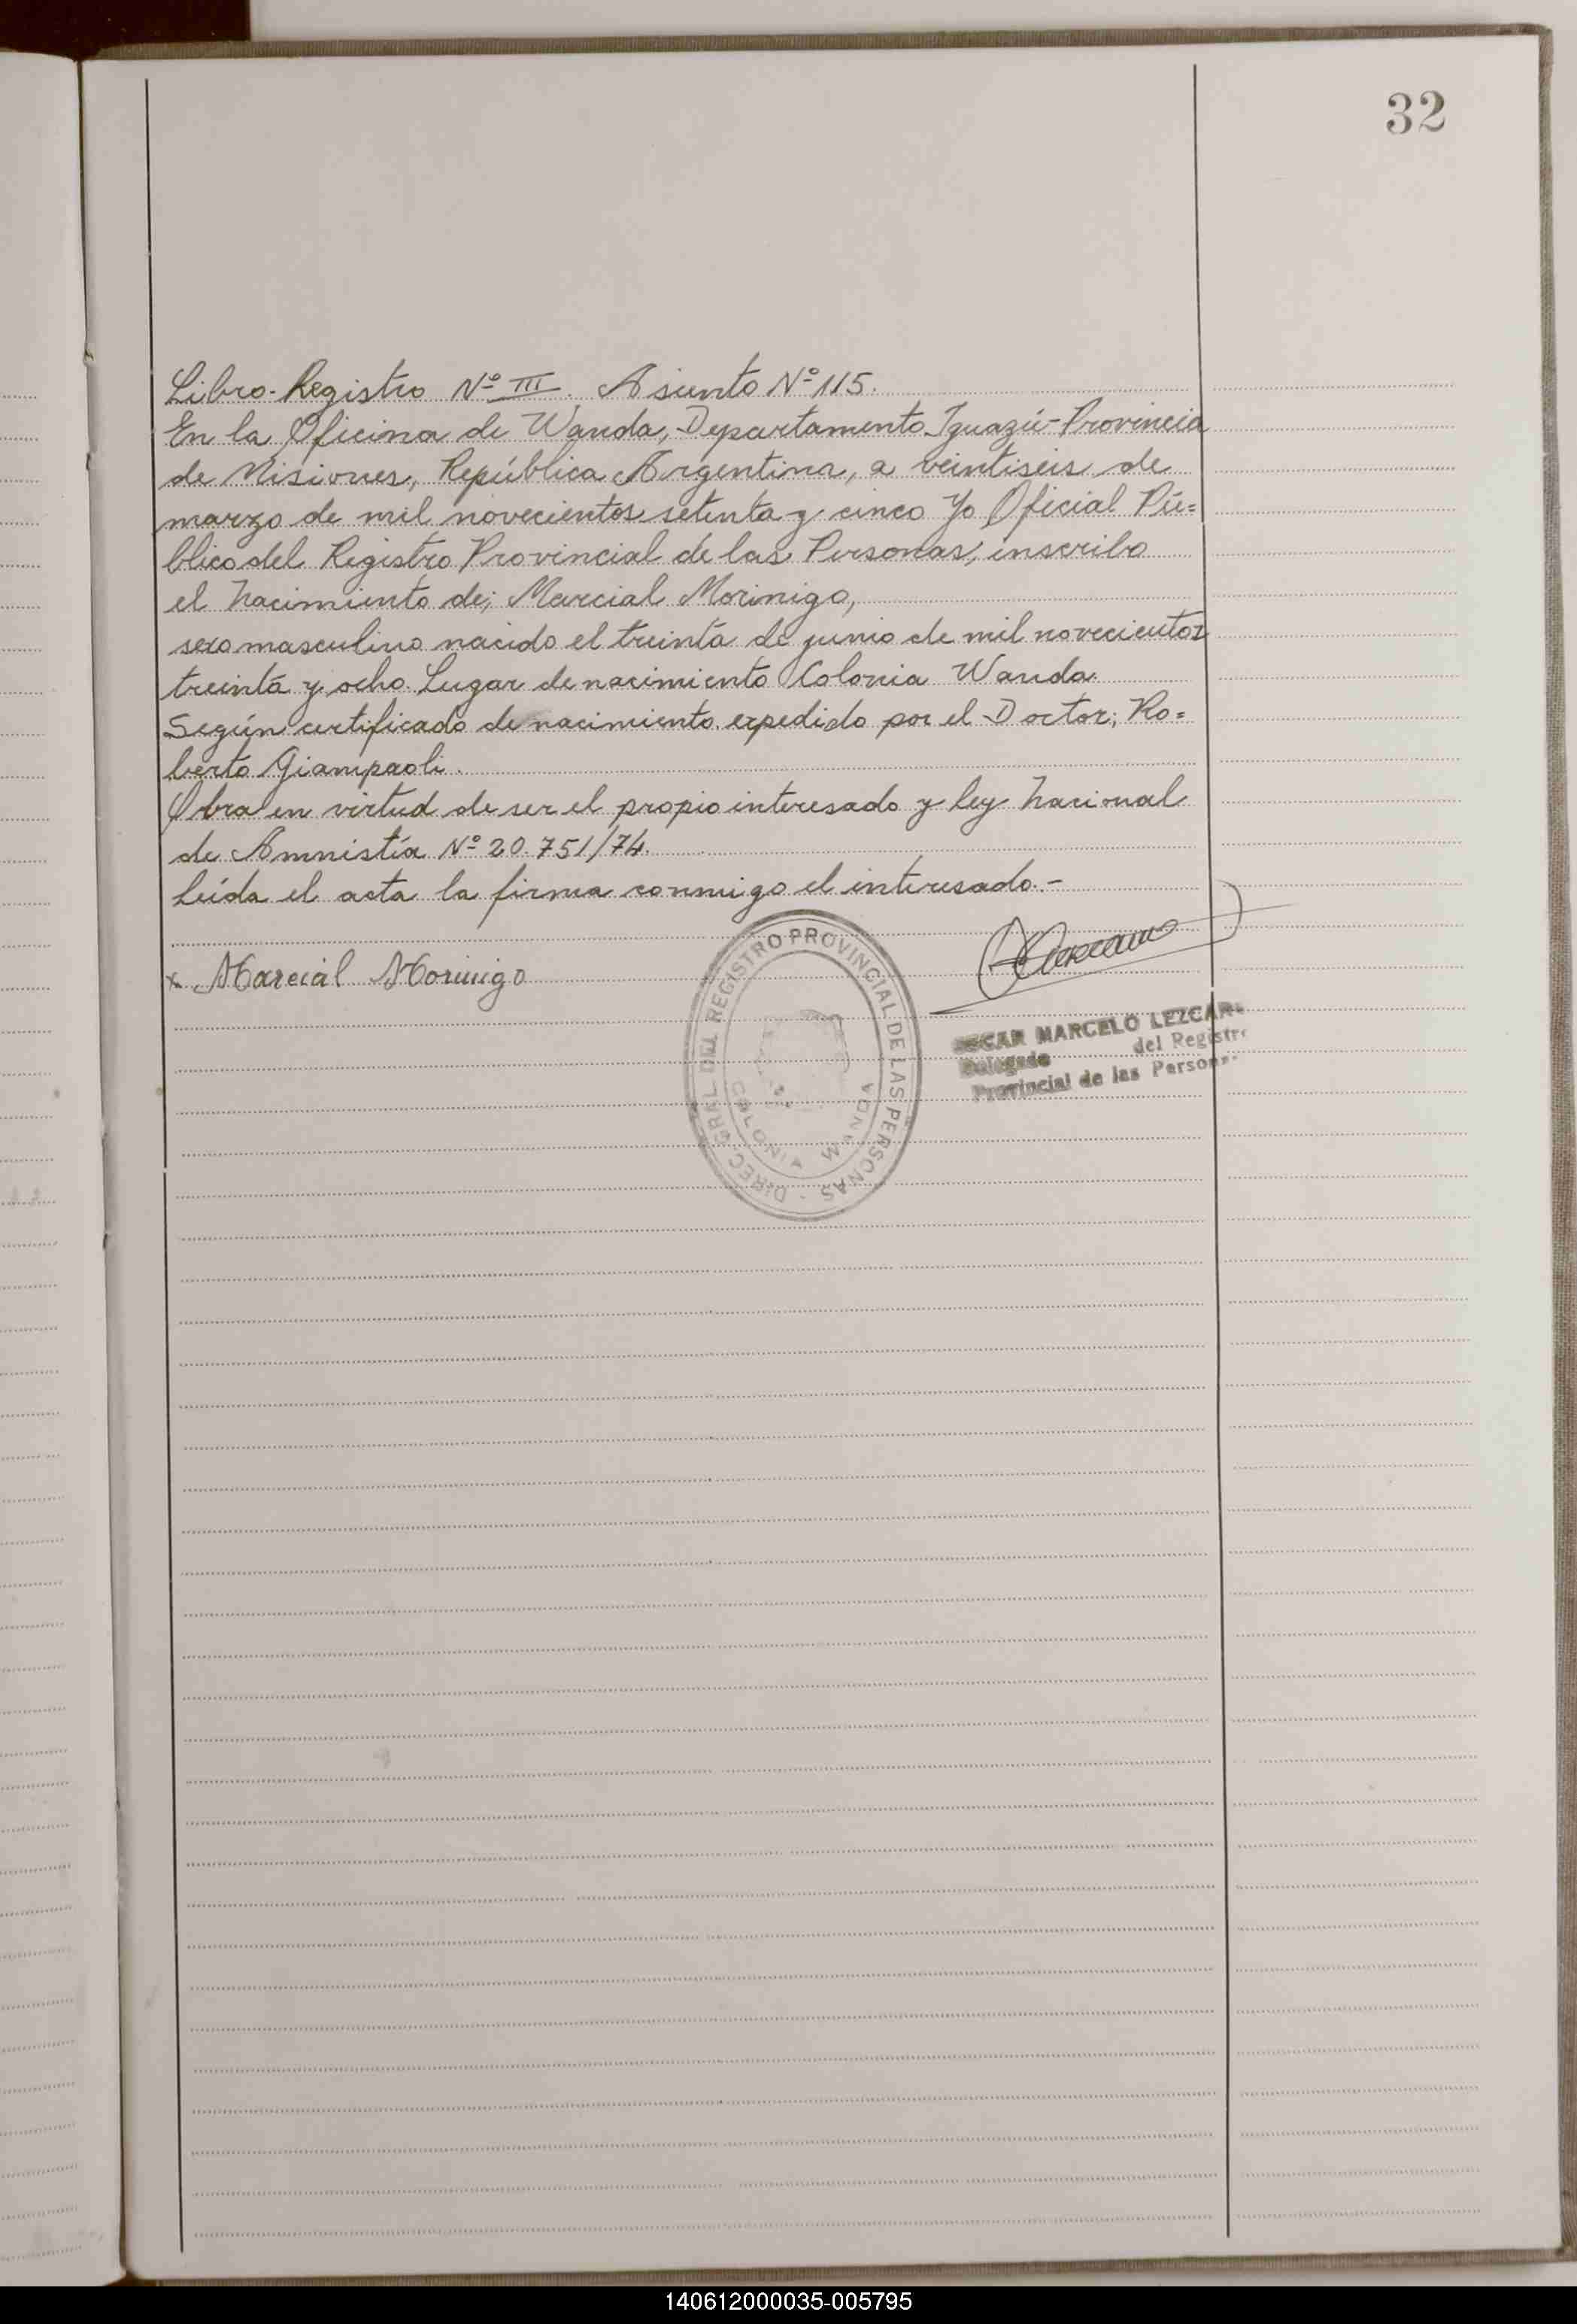 32
Libro-Registro Nº III. Asiento Nº 115.
En la Oficina de Wanda, Departamento Iguazú-Provincia
de Misiones, República Argentina, a veintiseis de
marzo de mil novecientos setenta y cinco Yo Oficial Pú=
blico del Registro Provincial de las Personas, inscribo
el nacimiento de; Marcial Morinigo,
sexo masculino nacido el treinta de junio de mil novecientos
treinta y ocho. Lugar de nacimiento Colonia Wanda
Según certificado de nacimiento expedido por el Doctor; Ro=
berto Giampaoli.
Obra en virtud de ser el propio interesado y ley nacional
de Amnistía Nº 20.751/74.
Leída el acta la firma conmigo el interesado.-
x Marcial Morinigo
DIREC. GRAL DEL REGISTRO PROVINCIAL DE LAS PERSONAS
COLONIA WANDA
OSCAR MARCELO LEZCANO
Delegado del Registro
Provincial de las Personas
140612000035-005795